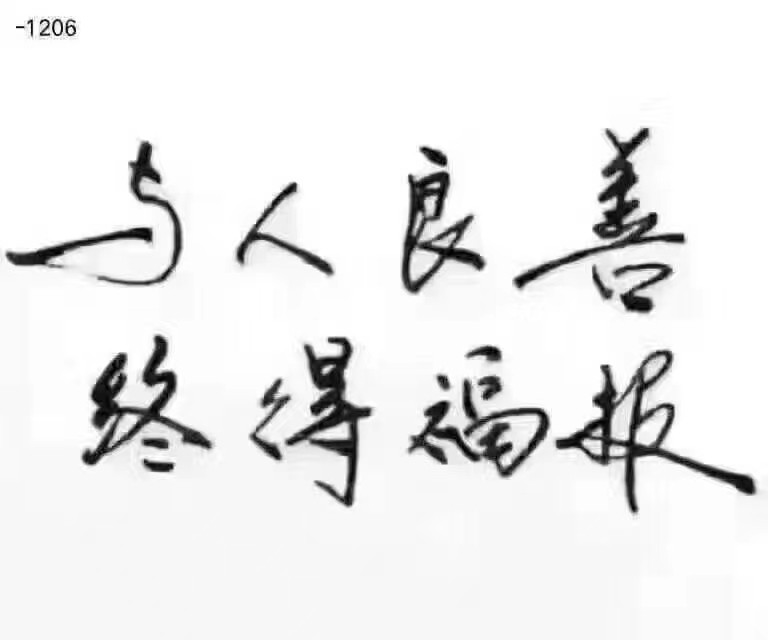 -1206
与人良善
终得福报